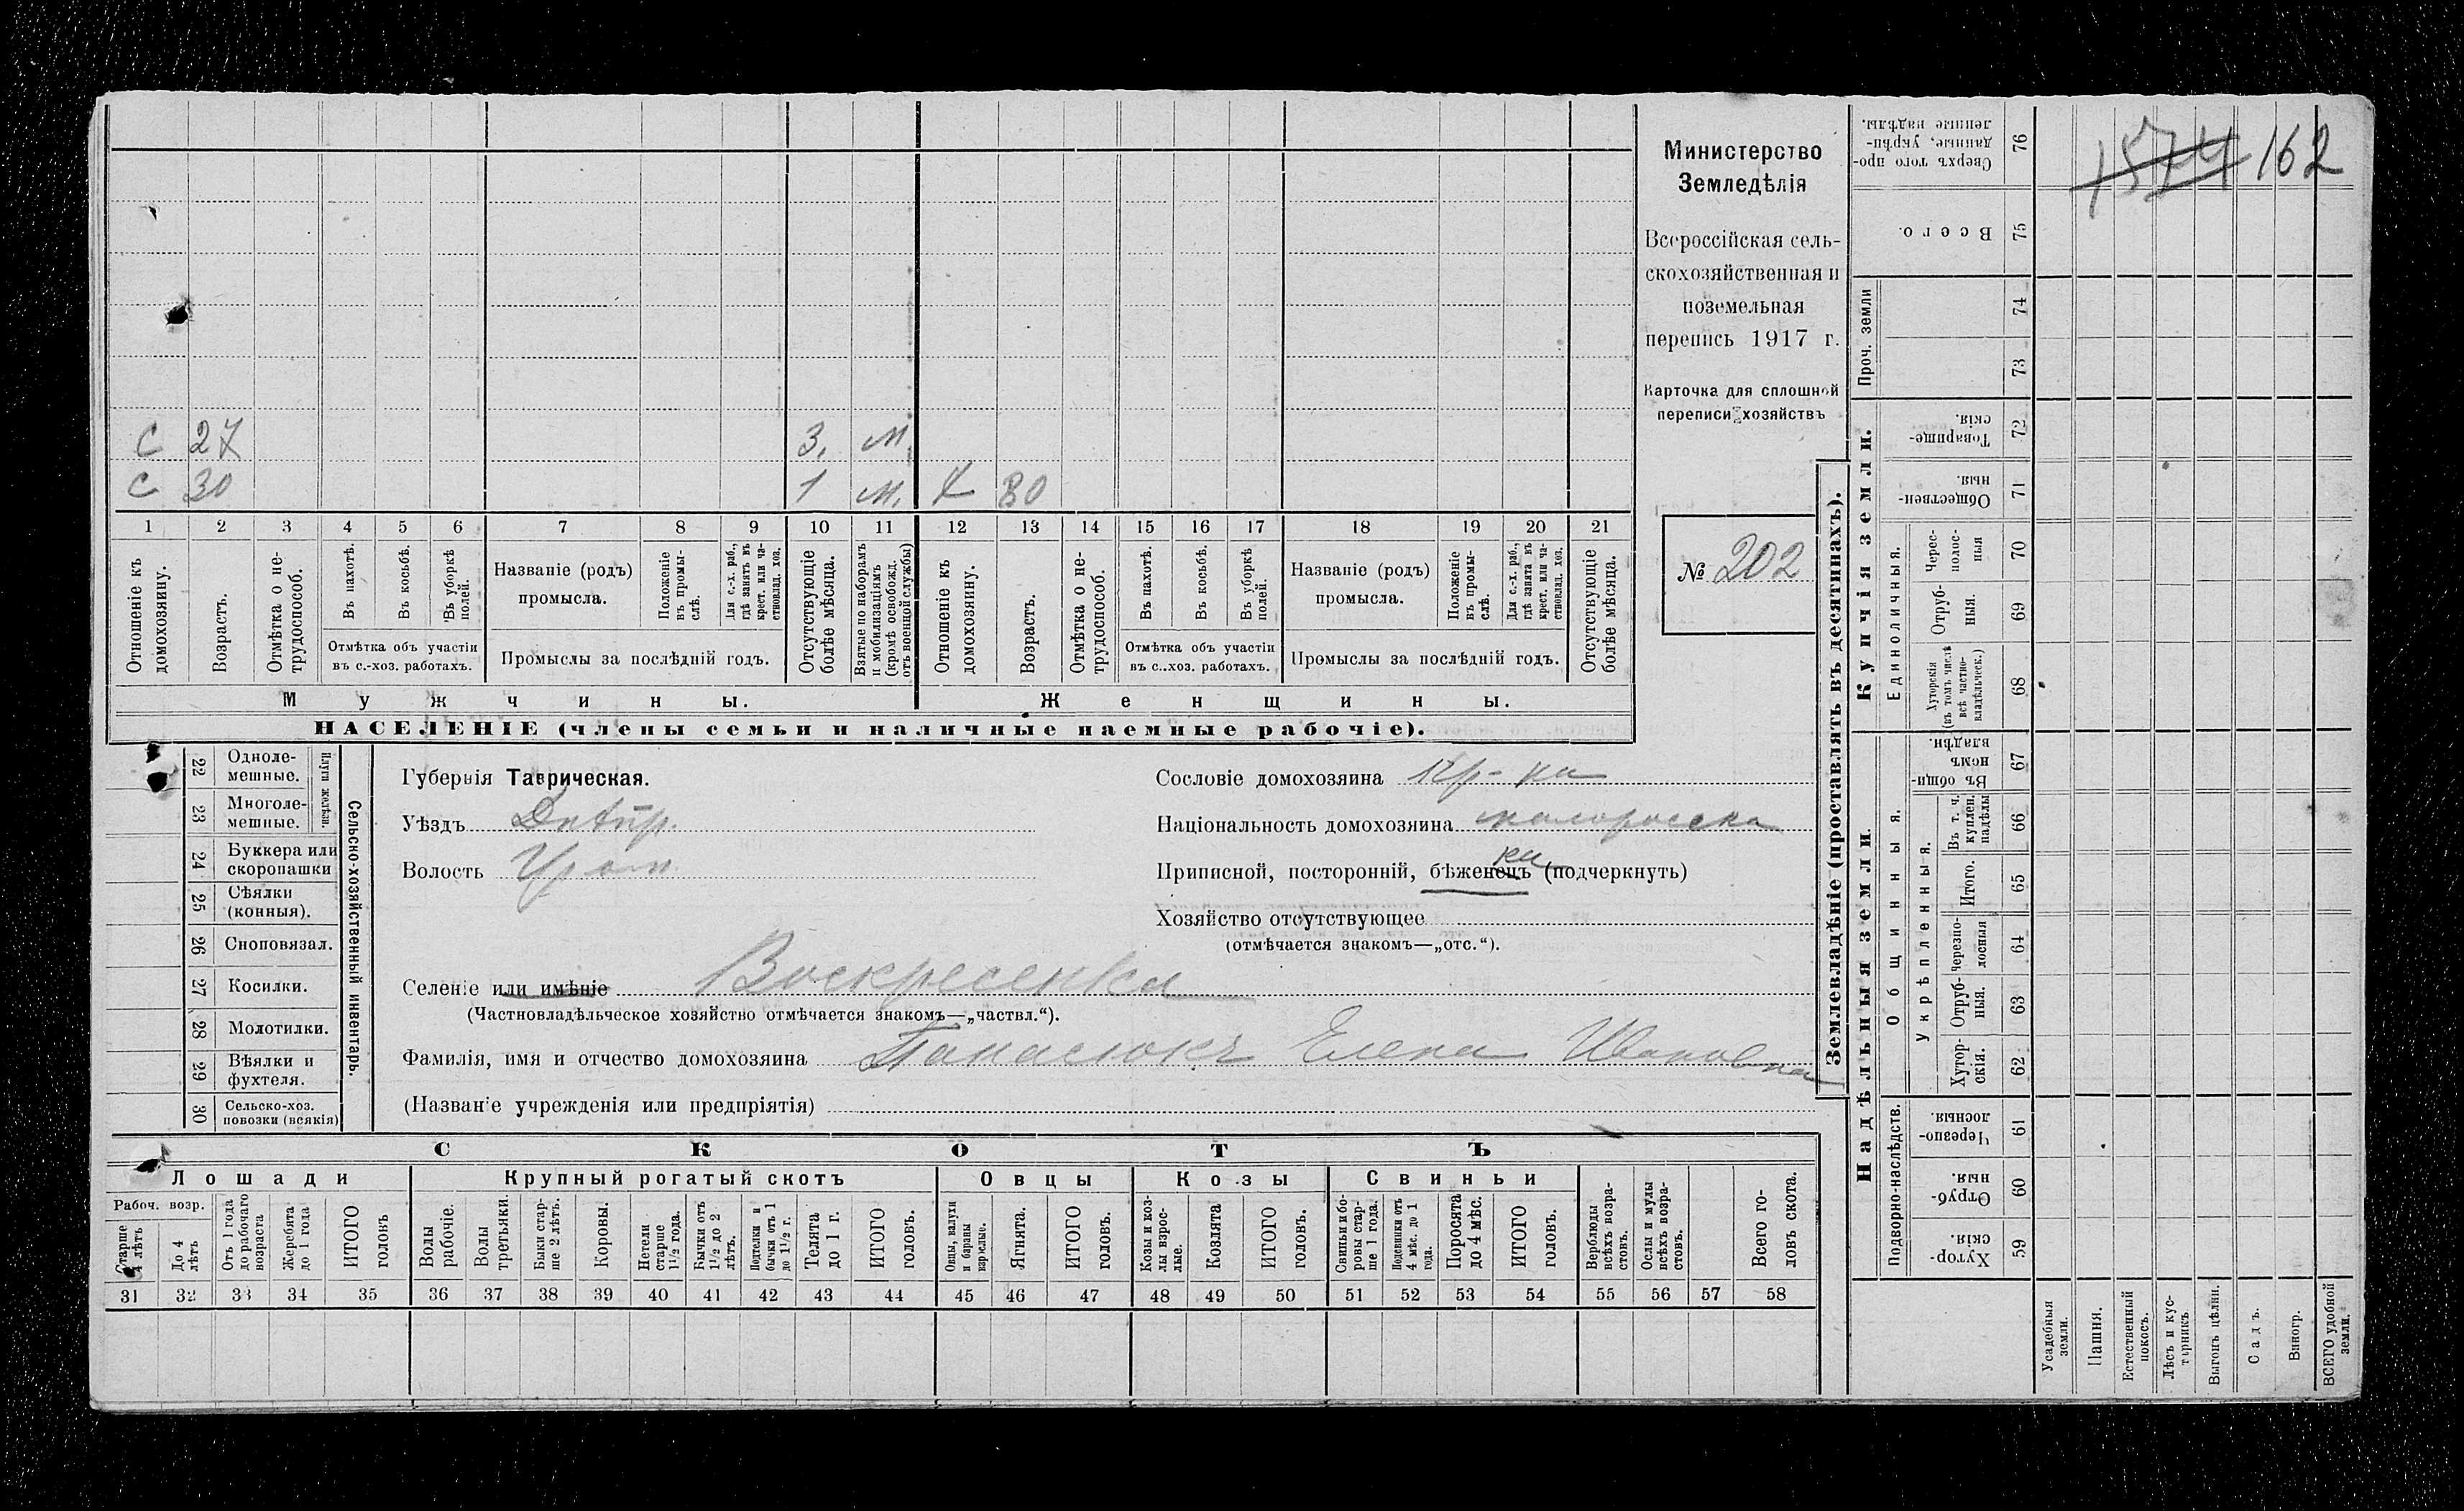 1574 162
Министерство
Земледѣлія
Всероссійская сель-
скохозяйственная и
поземельная
перепись 1917 г.
Карточка для сплошной
переписи хозяйствъ
№ 202
С 27 3. м.
С 30 1 м. Х 80
1 2 3 4 5 6 7 8 9 10 11 12 13 14 15 16 17 18 19 20 21
Отношеніе къ домохозяину.
Возрастъ.
Отмѣтка о не-
трудоспособ.
Въ пахотѣ.
Въ косьбѣ.
Въ уборкѣ полей.
Отмѣтка объ участіи
въ с.-хоз. работахъ.
Названіе (родъ)
промысла.
Положеніе
въ промы-
слѣ.
Для с.-х. раб.,
гдѣ занятъ въ
крест. или ча-
стновлад. хоз.
Промыслы за послѣдній годъ.
Отсутствующіе
болѣе мѣсяца.
Взятые по наборамъ
и мобилизаціямъ
(кромѣ освобожд.
отъ военной службы)
Отношеніе къ
домохозяину.
Возрастъ.
Отмѣтка о не-
трудоспособ.
Въ пахотѣ.
Въ косьбѣ.
Въ уборкѣ
полей.
Отмѣтка объ участіи
въ с..хоз. работахъ.
Названіе (родъ)
промысла.
Положеніе
въ промы-
слѣ.
Для с.-х. раб.,
гдѣ занята въ
крест. или ча-
стновлад. хоз.
Промыслы за послѣдній годъ.
Отсутствующіе
болѣе мѣсяца.
Мужчины. Женщины.
НАСЕЛЕНІЕ (члены семьи и наличные наемные рабочіе).
22 Одноле-
мешные.
23 Многоле-
мешные.
Плуги желѣзн.
24 Буккера или
скоропашки
25 Сѣялки
(конныя).
26 Сноповязал.
27 Косилки.
28 Молотилки.
29 Вѣялки и
фухтеля.
30 Сельско-хоз.
повозки (всякія)
Сельско-хозяйственный инвентарь.
Губернія Таврическая.
Уѣздъ Днѣпр.
Волость
Сословіе домохозяина Кр-ка
Національность домохозяина малоросска
Приписной, посторонній, бѣженецъ ка (подчеркнуть)
Хозяйство отсутствующее
(отмѣчается знакомъ—„отс.“).
Селеніе или имѣніе Воскресенка
(Частновладѣльческое хозяйство отмѣчается знакомъ—„частвл.“).
Фамилія, имя и отчество домохозяина Панасюкъ Елена Ивановна
(Названіе учрежденія или предпріятія)
СКОТЪ
Лошади
Крупный рогатый скотъ
Овцы
Козы
Свиньи
Рабоч. возр.
Старше
4 лѣтъ
До 4
лѣтъ
Отъ 1 года
до рабочаго
возраста
Жеребята
до 1 года
ИТОГО
головъ
Волы
рабочіе.
Волы
третьяки.
Быки стар-
ше 2 лѣтъ.
Коровы.
Нетели
старше
1½ года.
Бычки отъ
1½ до 2
лѣтъ.
Подтелки и
бычки отъ 1
до 1½ г.
Телята
до 1 г.
ИТОГО
головъ.
Овцы, валухи
и бараны
взрослые.
Ягнята.
ИТОГО
головъ.
Козы и коз-
лы взрос-
лые.
Козлята
ИТОГО
головъ.
Свиньи и бо-
ровы стар-
ше 1 года.
Подсвинки отъ
4 мѣс. до 1
года.
Поросята
до 4 мѣс.
ИТОГО
головъ.
Верблюды
всѣхъ возра-
стовъ.
Ослы и мулы
всѣхъ возра-
стовъ.
Всего го-
ловъ скота.
31 32 33 34 35 36 37 38 39 40 41 42 43 44 45 46 47 48 49 50 51 52 53 54 55 56 57 58
Землевладѣніе (проставлять въ десятинахъ).
Сверхъ того про-
данные, укрѣп-
ленные надѣлы.
76
Всего.
75
Проч. земли
74
73
Купчія земли.
Товарище-
скія.
72
Обществен-
ныя
71
Единоличныя.
Черес-
полос-
ныя
70
Отруб-
ныя.
69
Хуторскія
(въ томъ числѣ
всѣ частно-
владѣльческ.)
68
Надѣльныя земли.
Общинныя.
Въ общин-
номъ
владѣн.
67
Укрѣпленныя.
Въ т. ч.
куплен.
надѣлы
66
Итого.
65
Черезпо-
лосныя
64
Отруб-
ныя.
63
Хутор-
скія.
62
Подворно-наслѣдств.
Черезпо-
лосныя.
61
Отруб-
ныя.
60
Хутор-
скія.
59
Усадебныя
земли.
Пашня.
Естественный
покосъ.
Лѣсъ и кус-
тарникъ
Выгонъ цѣлин.
Садъ.
Виногр.
ВСЕГО удобной
земли.